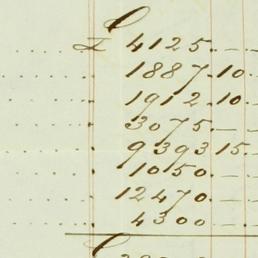 £ 4125. — . —
1887. 10. —
1912. 10. —
3075. — . —
9393. 15. —
1050. — . —
12470. — . —
4300. — . —